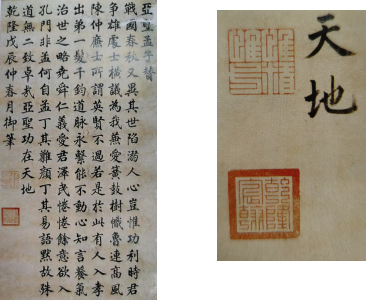 亞聖孟子贊
戰國春秋又異其世陷溺人心豈惟功利時君
爭雄處士橫議為我兼愛簧鼓樹幟魯連高風
陳仲廉士所謂英賢不過若是於此有人入孝
出弟一髮千鈞道脈永繫能不動心知言養氣
治世之略堯舜仁義愛君澤民惓惓餘意欲入
孔門非孟何自孟丁其難顏丁其易語默故殊
道無二致卓哉亞聖功在天地
乾隆戊辰仲春月御筆
天地
乾隆